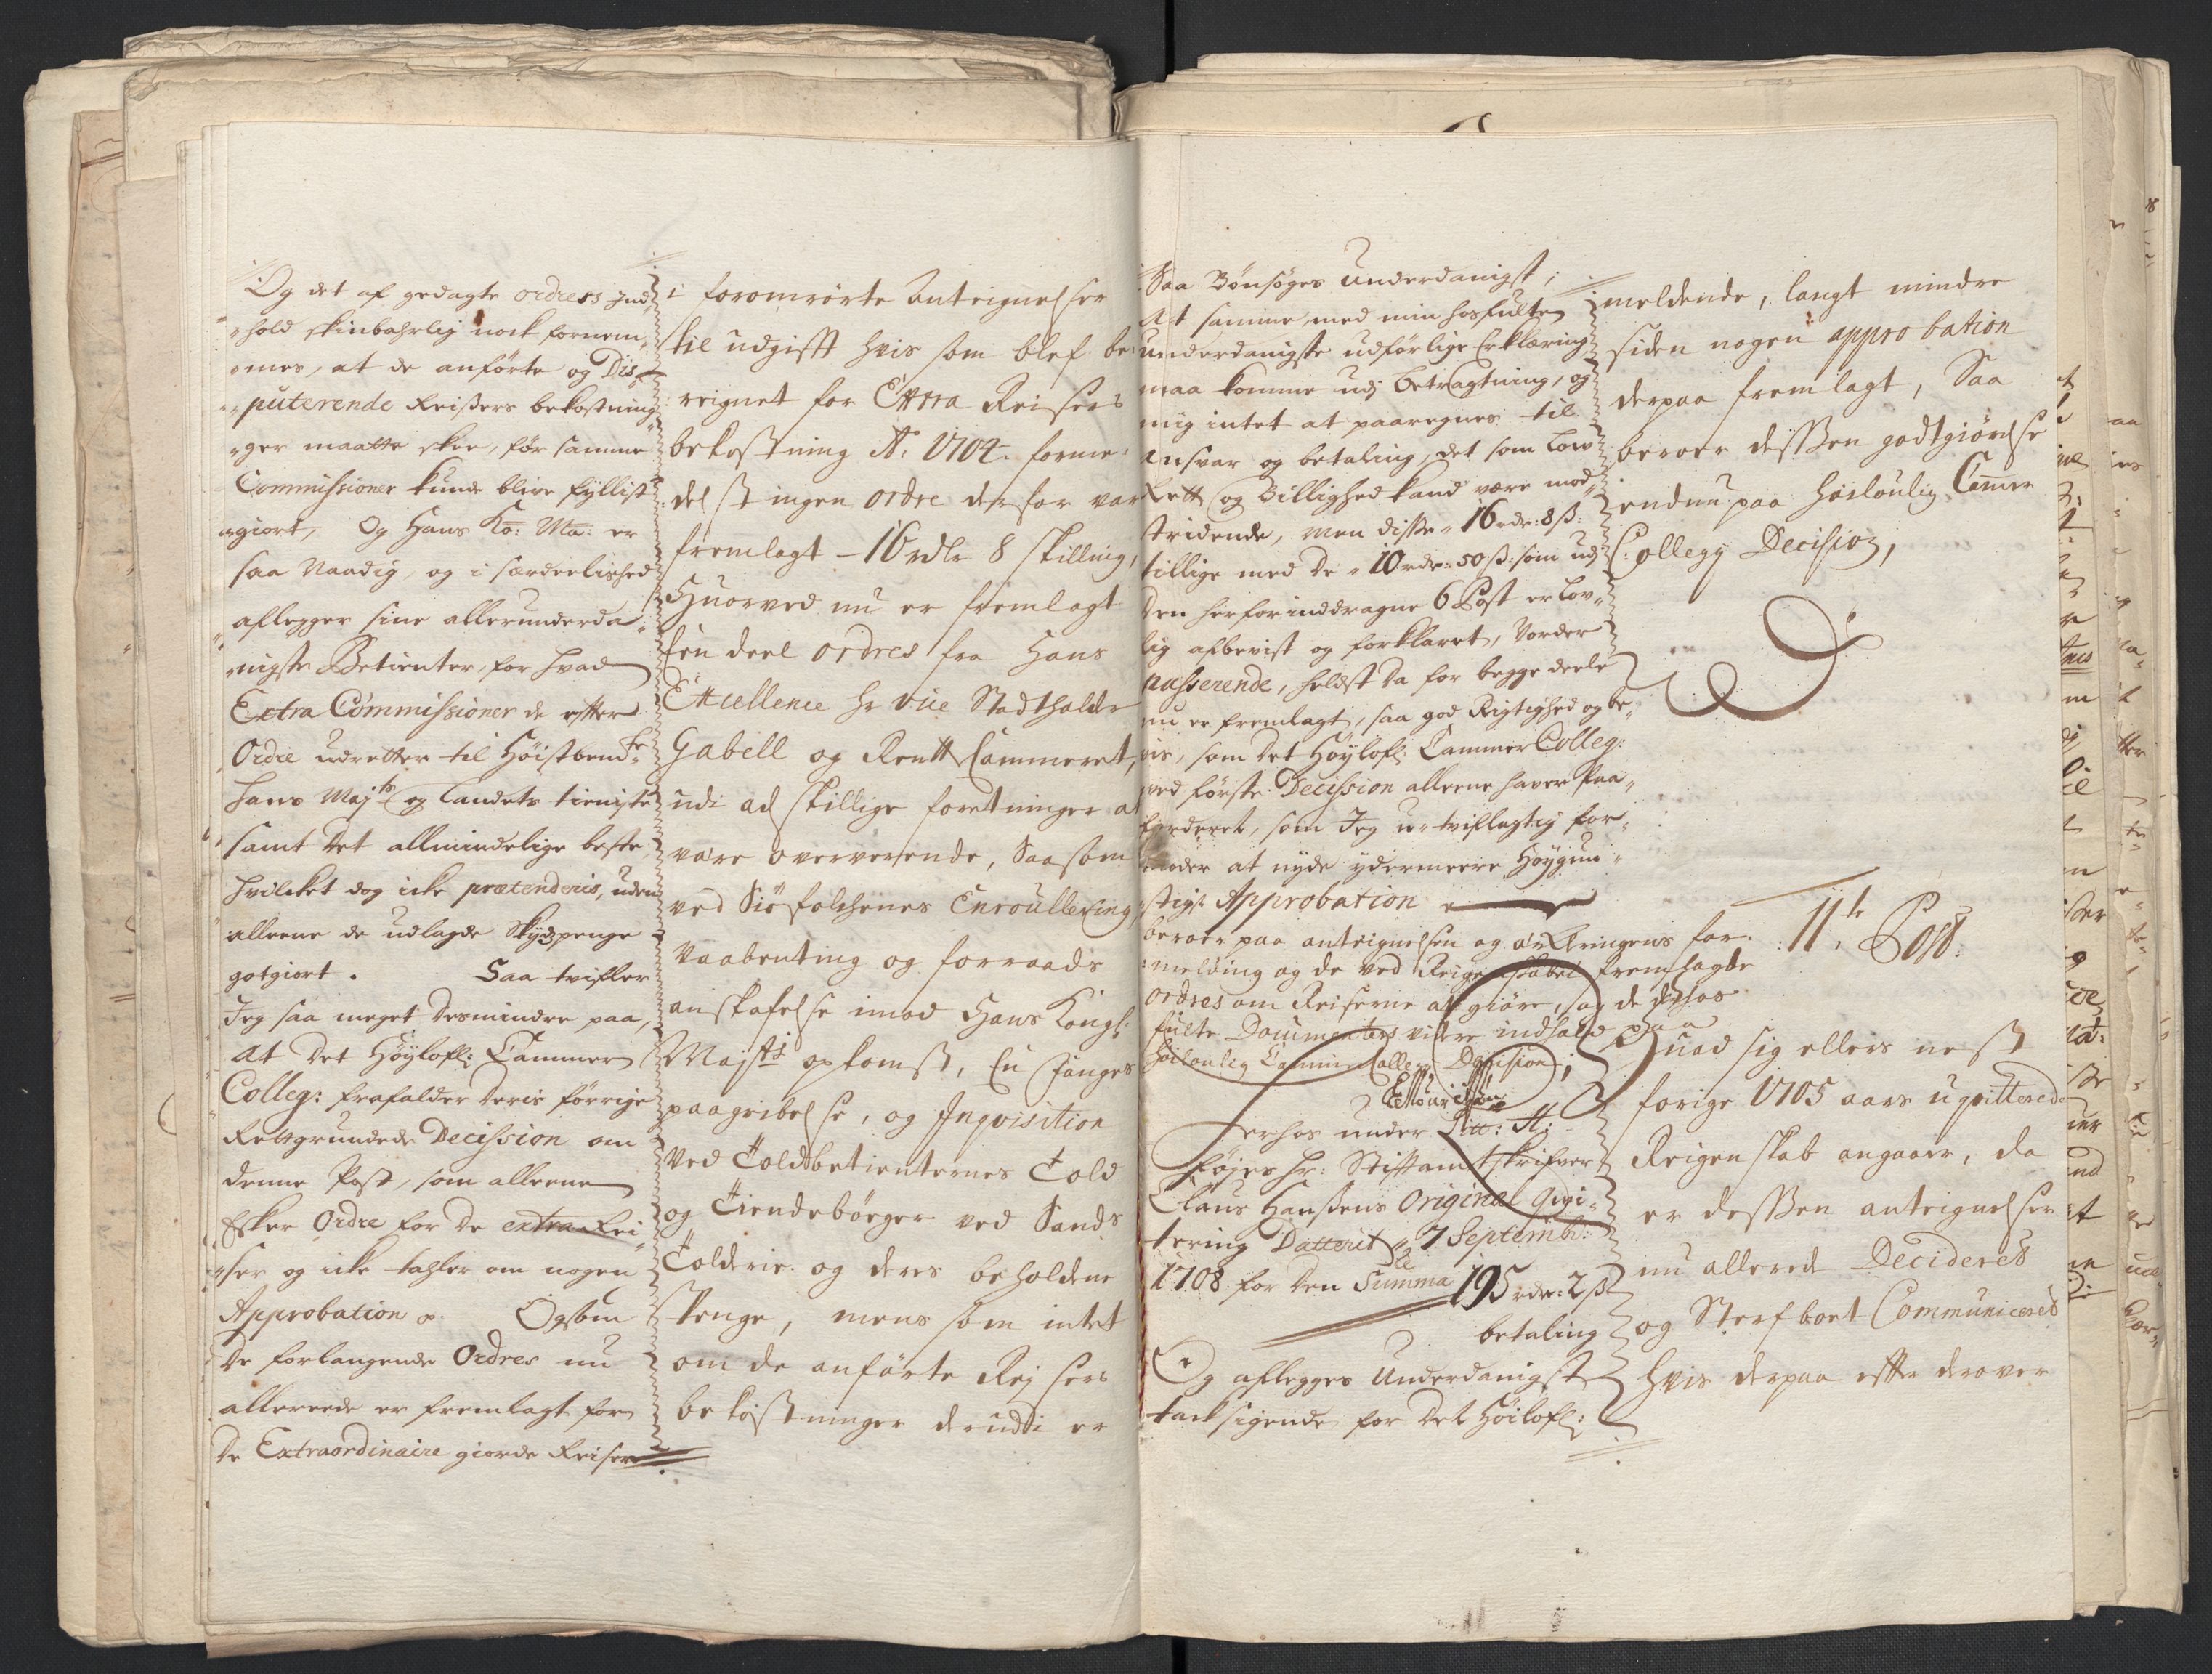 Og det af gedagte ordress Ind
hold skinbahrlig nock fornem
mes, at de anførte og Dis
puterende Reisers bekostnin
ger maatte skee, før samme
Commissioner kunde blive fyllist
giort, Og Hans Ko: Ma: er
saa Naadig, og i særdeelished
aflegger sine allerunderda
nigste Betienter, for hvad
Extra Commissioner de efter
Ordre udretter til Høistbemte
Hans Majts og Landets tieniste
samt det allmindelige beste,
hvilcket dog icke prætenderis, uden
alleene de udlagde Skydspenge
gotgiort. Saa tvifler
Jeg saa meget desmindre paa,
at det Høylofl: Cammer
Colleg: frafalder deris førrige
Retsgrundede Decission om
denne Post, som alleene
esker Ordre for de extra Rei
ser og icke tahler om nogen
Approbation &. Ogsom
de forlangende Ordres nu
allereede er fremlagt for
de Extraordinaire giorde Reiser
i foromrørte Antegnelser
til udgifft hvis som blef be
reignet for Extra Reisers
bekostning Ao 1704. forme
delst ingen ordre derfor var
fremlagt - 16 rdlr 8 skilling,
Huorved nu er fremlagt
Een deel ordres fra Hans
Excellence Hr vice Stadtholder
Gabell og Rentte Cammeret,
udi adskillige foretninger at
være overværende, Saasom
ved Siøfolchenes Enroullering
Vaabenting og forraads
anskafelse imod Hans Kongl:
Majsts opkomst, En fanges
paagribelse, og Inqvisition
ved Toldbetienternes Told
og Tiendebøeger ved Sands
Tolderie og deres beholdene
penge, mens som intet
om de anførte Rejsers
bekostninger derudi er
Saa Bønsøges Underdanigst,
At samme, med min hosfulte
underdanigste udførlige Erklæring
maa komme udj betragtning, og
mig intet at paaregnes til
ansvar og betaling, det som Low
Rett og Billighed kand være mod
stridende, men disse 16 rdr: 8 ß:
tillige med de 10 rdr: 50 ß: som udj
den herforinddragne 6 Post er Lov
lig afbevist og forklaret, Vorder
passerende, heldst da for begge deele
nu er fremlagt, saa god Rigtighed og be
vis, som det Høylofl: Cammer Colleg:
ved første Decission alleene haver paa
fordret, som Jeg u-tviflagtig for
moder at nyde ydermeere Høygun
stigst Approbation
beroer paa antegnelsen og erkleringens for
melding og de ved Reigenskabet fremlagde
ordres om Reiserne at giøre, sag de derhos
fulte Documenters videre indhold paa
Høilaulig Cammer Collegij Decision;
erhos under Litr: A:
føjes Hr: Stiftamtskrifver
Claus Hansens Original Qvi
tering Datterit 7 Septembr:
1708 for den Summa 195 rdr: 2 ß
betaling
Og aflegges Underdanigst
tacksigende for det Høilofl:
meldende, langt mindre
siden nogen approbation
derpaa fremlagt, Saa
beroer desßen godtgiørelse
endnu paa høiloulig Camer
Collegij Decision,
11te Post.
Huad sig ellers nest
forige 1705 aars uqvitterede
Reigenskab angaaer, da
er desßen antegnelser
nu allerede Decideret
og Sterfboet Communiceret
Hvis derpaa efter derover